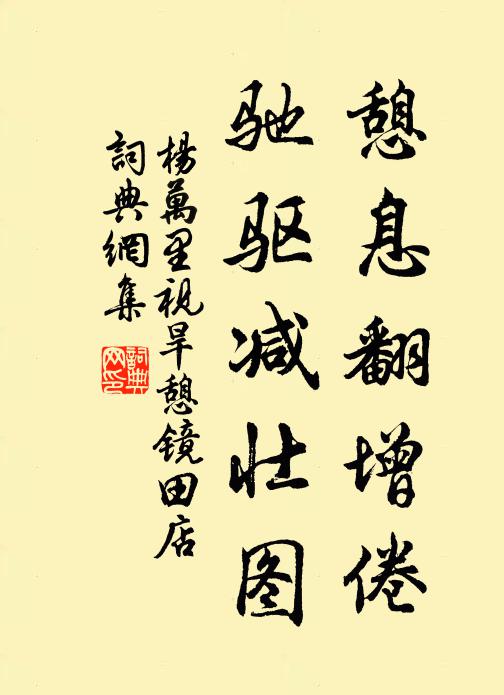 憩息翻增倦
驰驱减壮图
楊萬里視旱憩镜田店
詞典網集
詞典网印